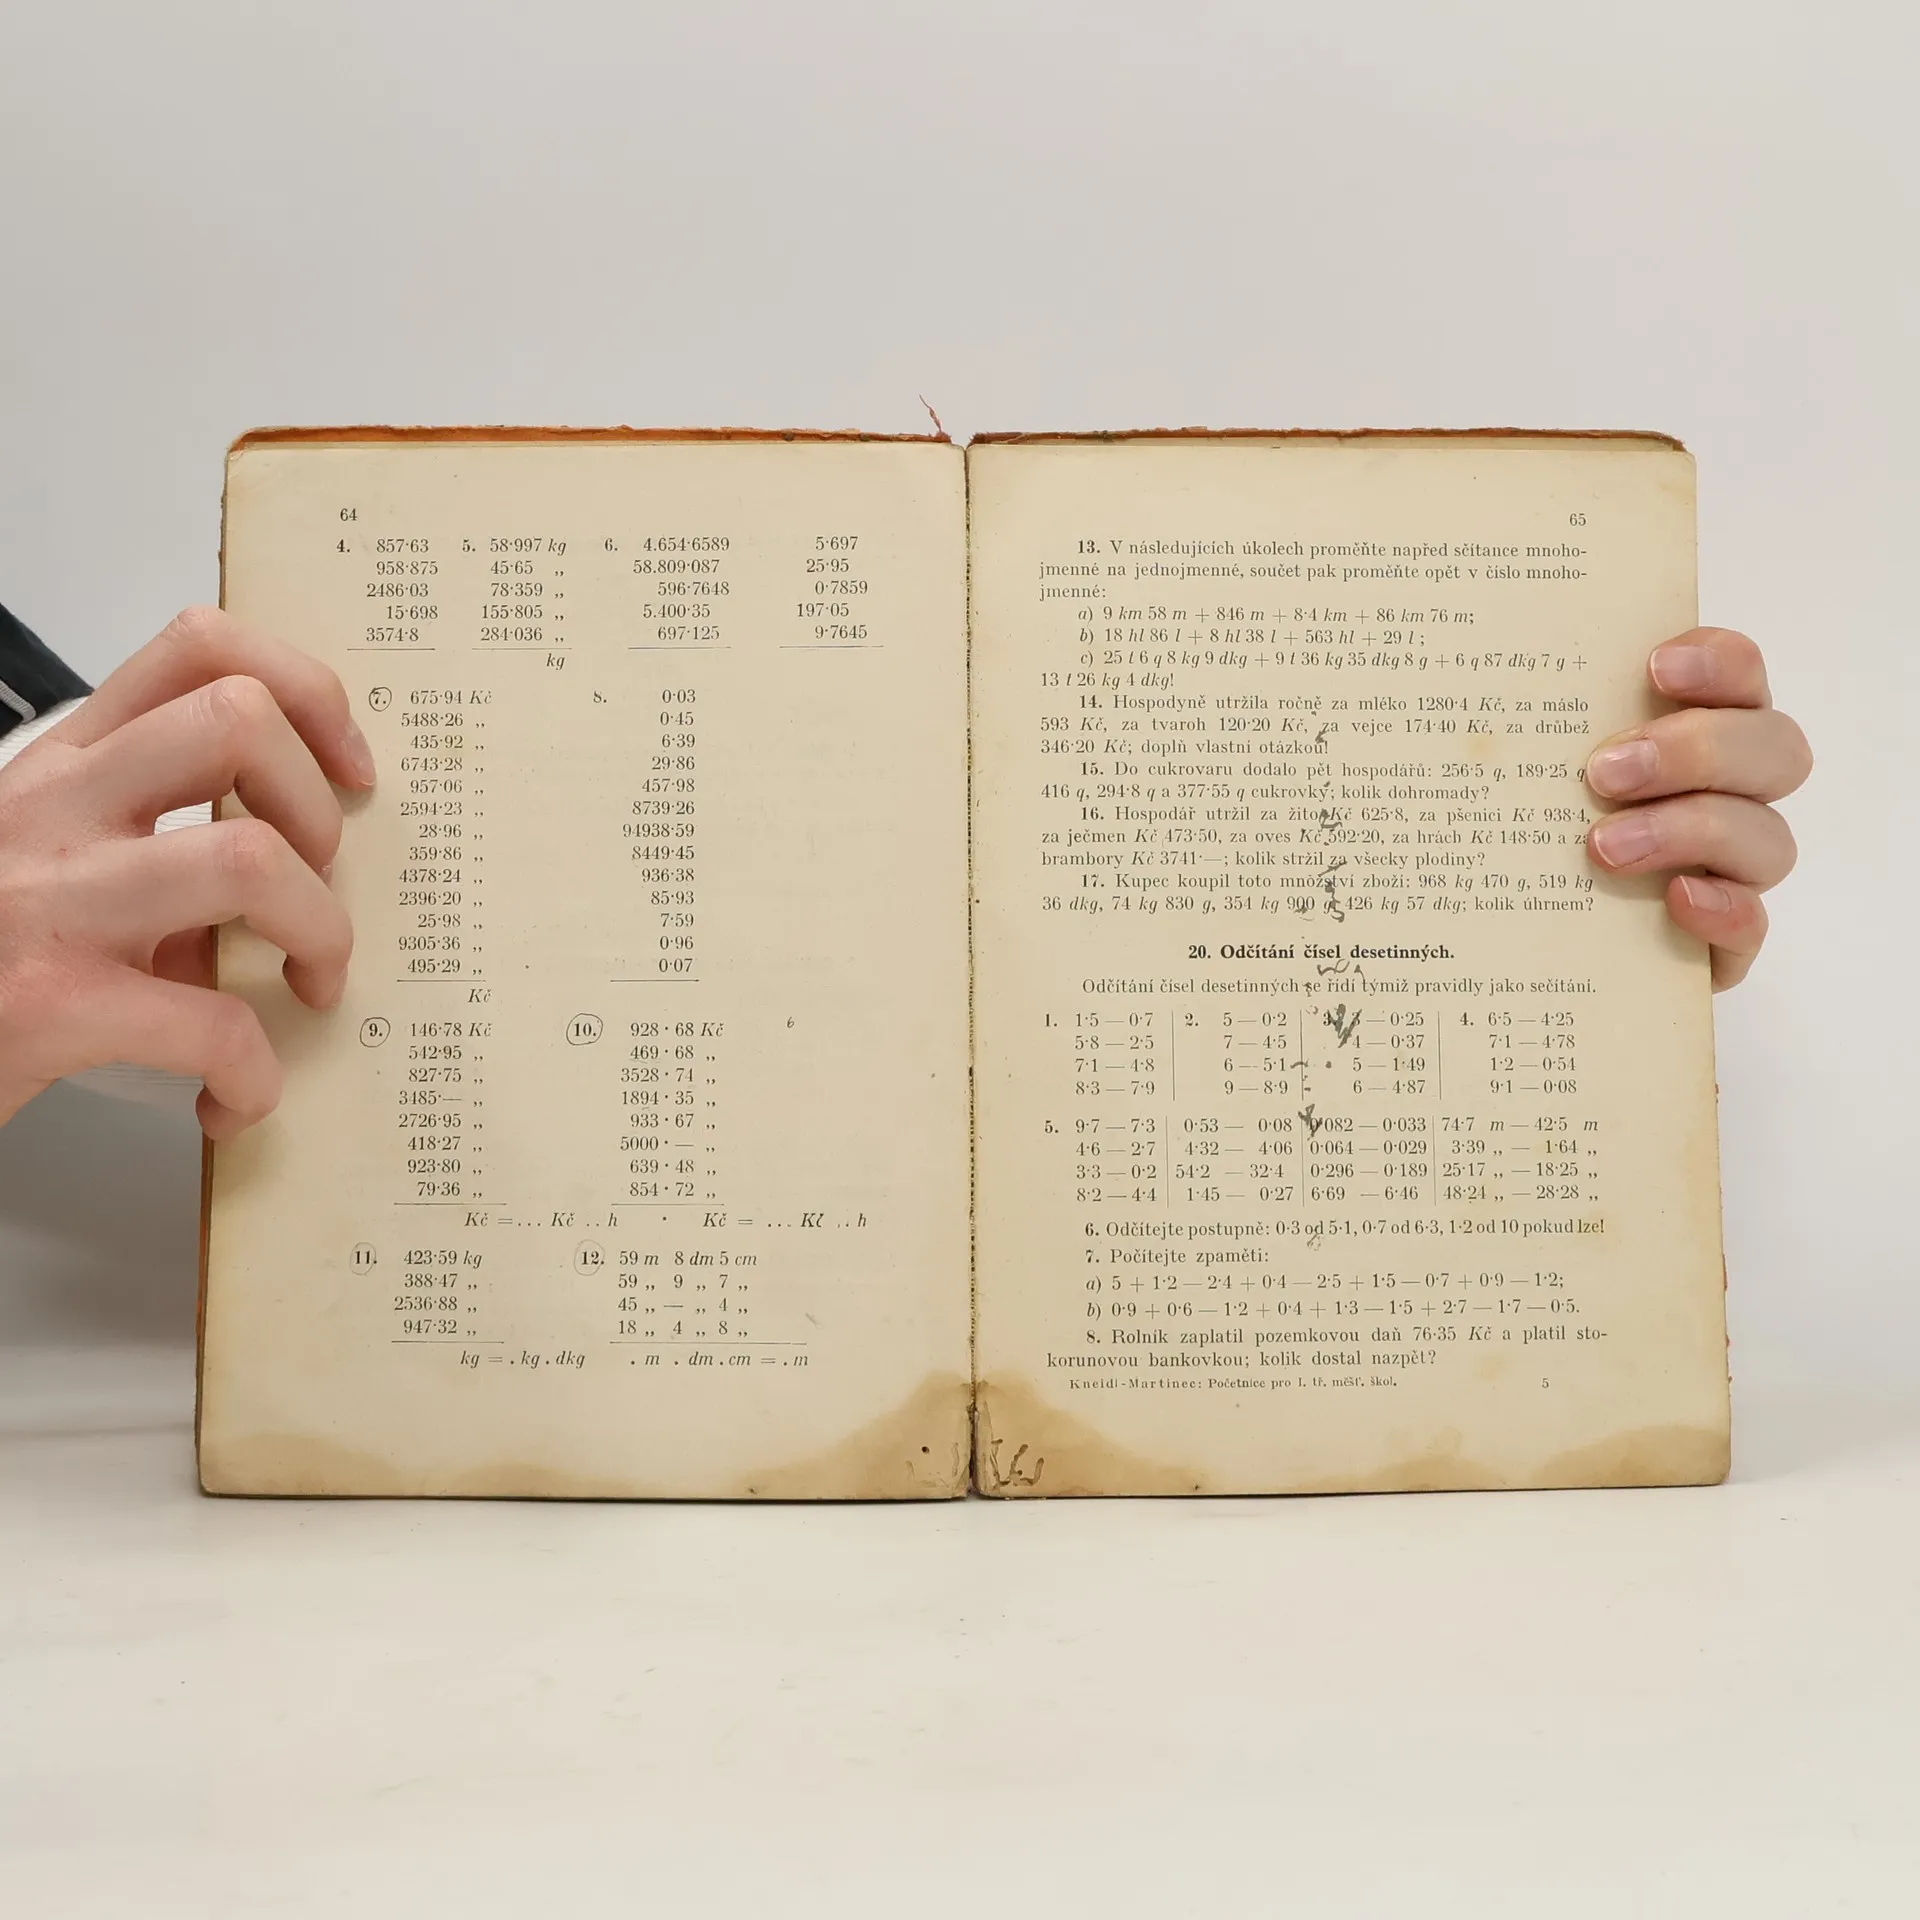 64
4. 857·63 5. 58·997 kg 6. 4.654·6589 5·697
958·875 45·65 „ 58.809·087 25·95
2486·03 78·359 „ 596·7648 0·7859
15·698 155·805 „ 5.400·35 197·05
3574·8 284·036 „ 697·125 9·7645
kg
7. 675·94 Kč 8. 0·03
5488·26 „ 0·45
435·92 „ 6·39
6743·28 „ 29·86
957·06 „ 457·98
2594·23 „ 8739·26
28·96 „ 94938·59
359·86 „ 8449·45
4378·24 „ 936·38
2396·20 „ 85·93
25·98 „ 7·59
9305·36 „ 0·96
495·29 „ 0·07
Kč
9. 146·78 Kč 10. 928·68 Kč 6
542·95 „ 469·68 „
827·75 „ 3528·74 „
3485·— „ 1894·35 „
2726·95 „ 933·67 „
418·27 „ 5000·— „
923·80 „ 639·48 „
79·36 „ 854·72 „
Kč = ... Kč .. h Kč = ... Kč .. h
11. 423·59 kg 12. 59 m 8 dm 5 cm
388·47 „ 59 „ 9 „ 7 „
2536·88 „ 45 „ — „ 4 „
947·32 „ 18 „ 4 „ 8 „
kg = . kg . dkg . m . dm . cm = . m
65
13. V následujících úkolech proměňte napřed sčítance mnoho-
jmenné na jednojmenné, součet pak proměňte opět v číslo mnoho-
jmenné:
a) 9 km 58 m + 846 m + 8·4 km + 86 km 76 m;
b) 18 hl 86 l + 8 hl 38 l + 563 hl + 29 l;
c) 25 t 6 q 8 kg 9 dkg + 9 t 36 kg 35 dkg 8 g + 6 q 87 dkg 7 g +
13 t 26 kg 4 dkg!
14. Hospodyně utržila ročně za mléko 1280·4 Kč, za máslo
593 Kč, za tvaroh 120·20 Kč, za vejce 174·40 Kč, za drůbež
346·20 Kč; doplň vlastní otázkou!
15. Do cukrovaru dodalo pět hospodářů: 256·5 q, 189·25 q
416 q, 294·8 q a 377·55 q cukrovky; kolik dohromady?
16. Hospodář utržil za žito Kč 625·8, za pšenici Kč 938·4,
za ječmen Kč 473·50, za oves Kč 592·20, za hrách Kč 148·50 a za
brambory Kč 3741·—; kolik stržil za všecky plodiny?
17. Kupec koupil toto množství zboží: 968 kg 470 g, 519 kg
36 dkg, 74 kg 830 g, 354 kg 900 g, 426 kg 57 dkg; kolik úhrnem?
20. Odčítání čísel desetinných.
Odčítání čísel desetinných se řídí týmiž pravidly jako sečítání.
1. 1·5 — 0·7 2. 5 — 0·2 3. 3 — 0·25 4. 6·5 — 4·25
5·8 — 2·5 7 — 4·5 4 — 0·37 7·1 — 4·78
7·1 — 4·8 6 — 5·1 5 — 1·49 1·2 — 0·54
8·3 — 7·9 9 — 8·9 6 — 4·87 9·1 — 0·08
5. 9·7 — 7·3 0·53 — 0·08 0·082 — 0·033 74·7 m — 42·5 m
4·6 — 2·7 4·32 — 4·06 0·064 — 0·029 3·39 „ — 1·64 „
3·3 — 0·2 54·2 — 32·4 0·296 — 0·189 25·17 „ — 18·25 „
8·2 — 4·4 1·45 — 0·27 6·69 — 6·46 48·24 „ — 28·28 „
6. Odčítejte postupně: 0·3 od 5·1, 0·7 od 6·3, 1·2 od 10 pokud lze!
7. Počítejte zpaměti:
a) 5 + 1·2 — 2·4 + 0·4 — 2·5 + 1·5 — 0·7 + 0·9 — 1·2;
b) 0·9 + 0·6 — 1·2 + 0·4 + 1·3 — 1·5 + 2·7 — 1·7 — 0·5.
8. Rolník zaplatil pozemkovou daň 76·35 Kč a platil sto-
korunovou bankovkou; kolik dostal nazpět?
Kneidl-Martinec: Početnice pro I. tř. měšť. škol. 5